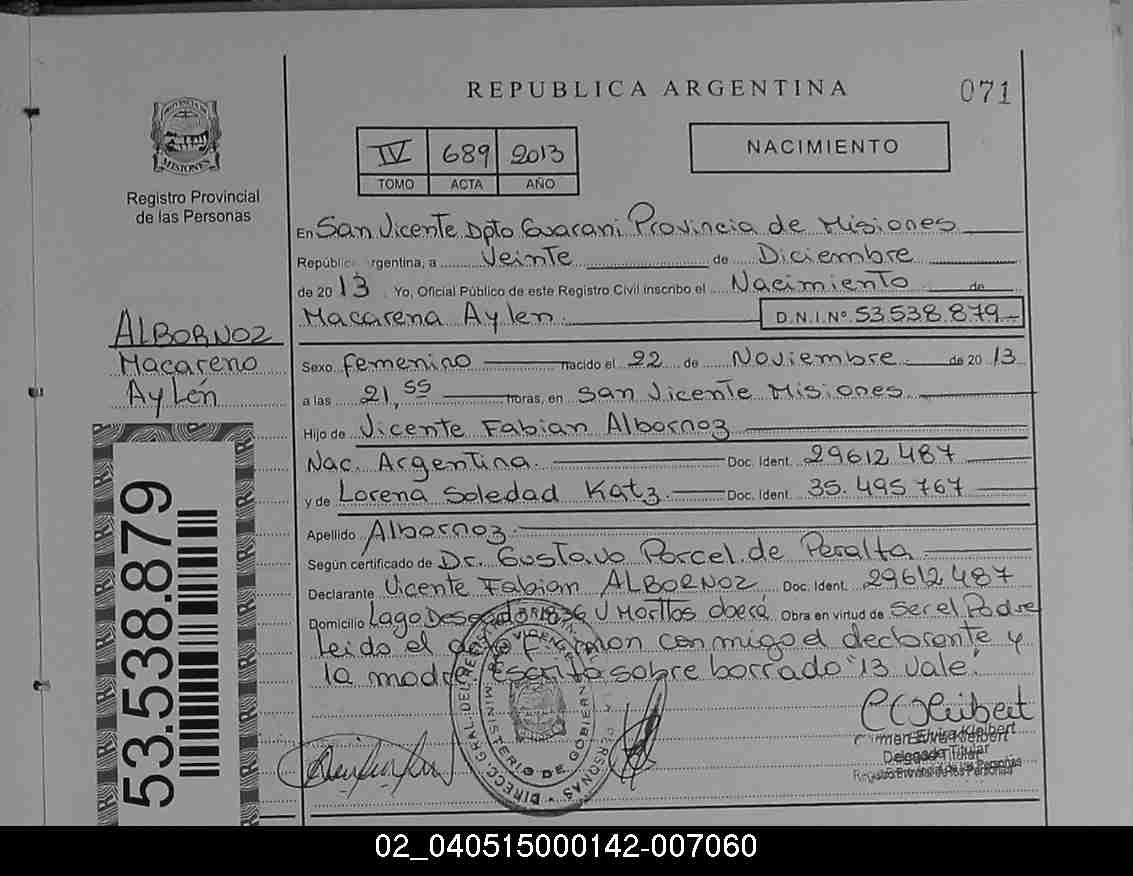 REPUBLICA ARGENTINA
071
PROVINCIA DE
MISIONES
Registro Provincial
de las Personas
IV 689 2013
TOMO ACTA AÑO
NACIMIENTO
En San Vicente Dpto Guarani Provincia de Misiones
Repúblic rgentina, a Veinte de Diciembre
de 2013 Yo, Oficial Público de este Registro Civil inscribo el Nacimiento de
Macarena Aylen. D.N.I Nº 53.538.879
ALBORNOZ
Macareno
Aylén
53.538.879
Sexo femenino nacido el 22 de Noviembre de 2013
a las 21,55 horas, en San Vicente Misiones
Hijo de Vicente Fabian Albornoz
Nac. Argentina. Doc. Ident. 29612487
y de Lorena Soledad Katz. Doc. Ident. 35.495767
Apellido Albornoz
Según certificado de Dr. Gustavo Porcel de Peralta
Declarante Vicente Fabian ALBORNOZ Doc. Ident. 29612487
Domicilio Lago 1836 oberá Obra en virtud de ser el Padre
Leido el acta Firman conmigo el declarante y
la madre, escrito sobre borrado "13 Vale".
DIRECC. GRAL. DEL REG. PERSONAS
MINISTERIO DE GOBIERNO
Elvira Kleibert
Delegada Titular
Registro Provincial de las Personas
02_040515000142-007060